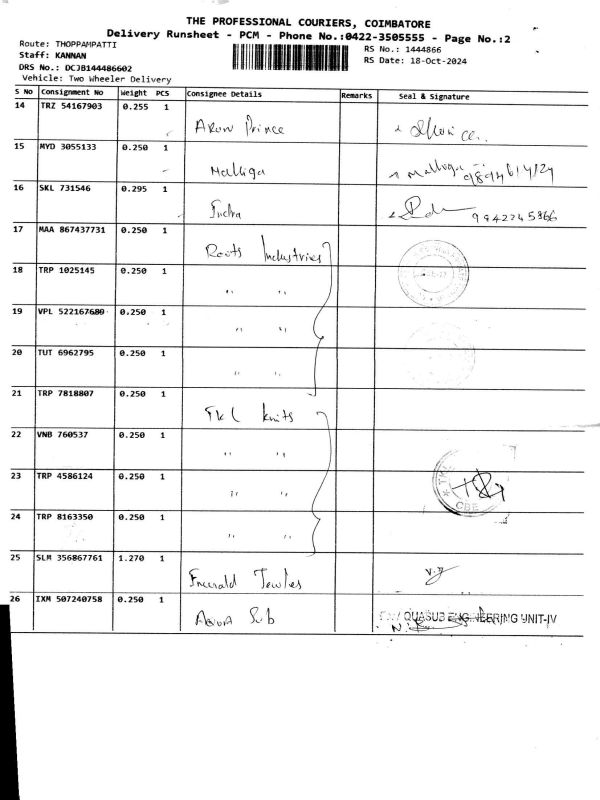 THE PROFESSIONAL COURIERS, COIMBATORE
Delivery Runsheet - PCM - Phone No.:0422-3505555 - Page No.:2
Route: THOPPAMPATTI
RS No.: 1444866
Staff: KANNAN
RS Date: 18-Oct-2024
DRS No.: DCJB144486602
Vehicle: Two Wheeler Delivery
S No Consignment No Weight PCS Consignee Details Remarks Seal & Signature
14 TRZ 54167903 0.255 1 Arun Prince
15 MYD 3055133 0.250 1 Malliga Malliga
16 SKL 731546 0.295 1 Indra
17 MAA 867437731 0.250 1 Roots Industries
18 TRP 1025145 0.250 1 " "
19 VPL 522167680 0.250 1 " "
20 TUT 6962795 0.250 1 " "
21 TRP 7818807 0.250 1 TKL knits
22 VNB 760537 0.250 1 " "
23 TRP 4586124 0.250 1 " "
CBE
24 TRP 8163350 0.250 1 " "
25 SLM 356867761 1.270 1 Emerald Jewles
26 IXM 507240758 0.250 1 Aqua Sub QUASUB ENGINEERING UNIT-IV